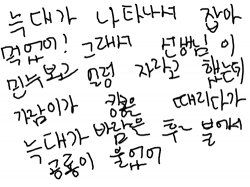 늑대가 나타나서 잡아
먹었어! 그래서 선생님이
민수보고 얼렁 자라고 했는데
가람이가 쿵쿵 때리다가
늑대가 바람은 후~ 불어서
공룡이 울었어